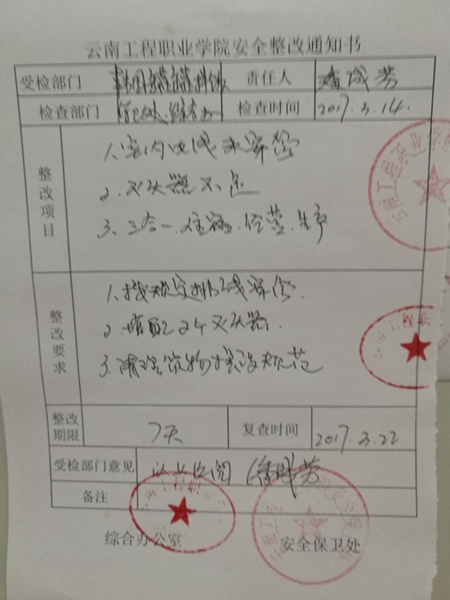 云南工程职业学院安全整改通知书
受检部门 责任人 潘成芳
检查部门 保卫处、综合办 检查时间 2017.3.14.
整改项目
1.室内电线未穿管
2.灭火器不足
3.三合一.住宿、经营、生产
整改要求
1.按规定排线穿管.
2.增配2个灭火器.
3.清理货物摆设规范
整改期限 7天 复查时间 2017.3.22
受检部门意见 以上已阅 潘成芳
备注
综合办公室 安全保卫处